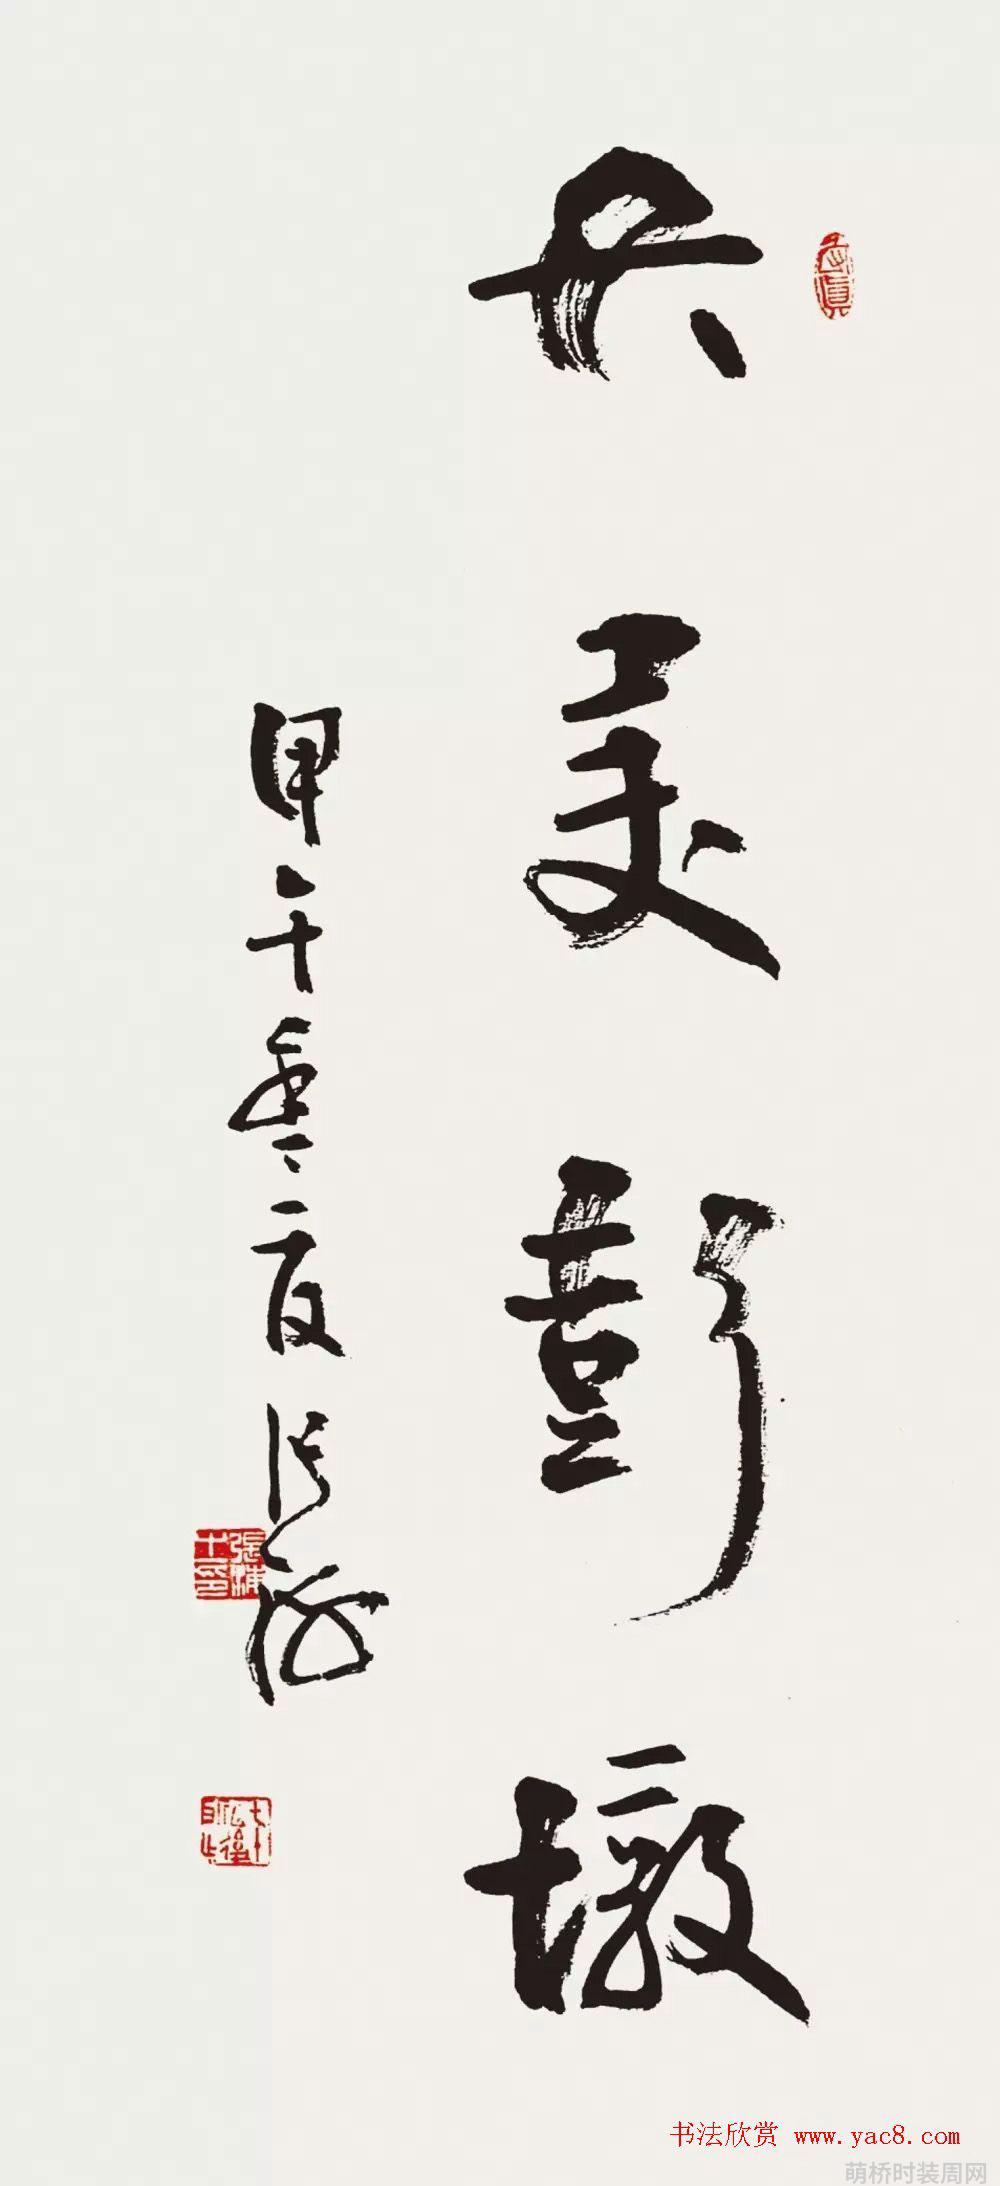 大美彭墩
甲午夏 张
书法欣赏 www.yac8.com
萌桥时装周网